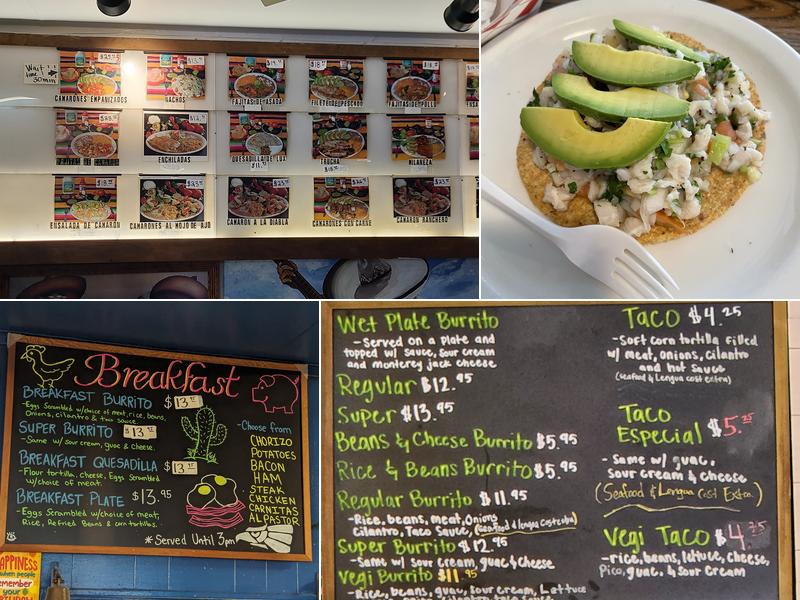 Wait time 30 min
CAMARONES EMPANIZADOS
NACHOS
FAJITAS DE ASADA
FILETE DE PESCADO
FAJITAS DE POLLO
ENCHILADAS
QUESADILLA DE LUX
TRUCHA
MILANEZA
ENSALADA DE CAMARON
CAMARONES AL MOJO DE AJO
CAMARON A LA DIABLA
CAMARONES CON CARNE
CAMARON RANCHERO
Breakfast
BREAKFAST BURRITO $13
-Eggs Scrambled w/choice of meat, rice, beans,
Onions, cilantro & taco sauce.
SUPER BURRITO
-Same w/ sour cream, guac & cheese.
BREAKFAST QUESADILLA $13
-Flour tortilla, cheese, Eggs Scrambled
w/choice of meat.
BREAKFAST PLATE $13.95
-Eggs Scrambled w/choice of meat,
Rice, Refried Beans & corn tortillas.
-Choose from
CHORIZO
POTATOES
BACON
HAM
STEAK
CHICKEN
CARNITAS
AL PASTOR
*Served Until 3pm
HAPPINESS
when people
remember
your
Wet Plate Burrito
-Served on a plate and
topped w/ sauce, sour cream
and monterey jack cheese
Regular $12.95
Super $13.95
Beans & Cheese Burrito $5.95
Rice & Beans Burrito $5.95
Regular Burrito $11.95
-Rice, beans, meat, Onions
Cilantro, Taco Sauce, (Seafood & lengua costs extra)
Super Burrito $12.95
-Same w/ sour cream, guac & cheese
Vegi Burrito $11.95
-Rice, beans, guac, sour cream, Lettuce
Taco $4.25
-Soft corn tortilla filled
w/ meat, onions, cilantro
and hot sauce
(seafood & Lengua cost extra)
Taco
Especial $5.25
-Same w/ guac,
sour cream & cheese
(Seafood & Lengua Cost Extra)
Vegi Taco $4.75
-rice, beans, letuce, cheese,
Pico, guac, & Sour cream